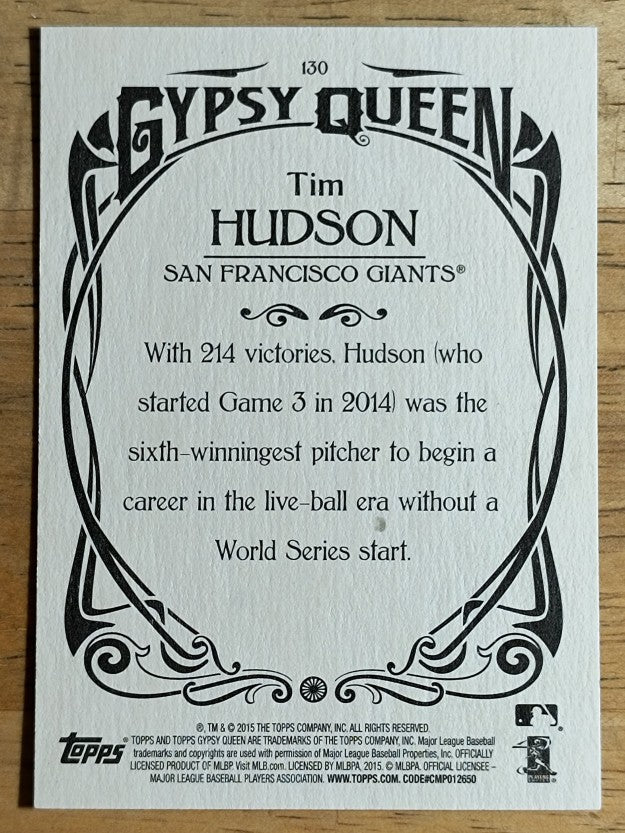 130
GYPSY QUEEN
Tim
HUDSON
SAN FRANCISCO GIANTS®
With 214 victories, Hudson (who
started Game 3 in 2014) was the
sixth-winningest pitcher to begin a
career in the live-ball era without a
World Series start.
®, TM & © 2015 THE TOPPS COMPANY, INC. ALL RIGHTS RESERVED.
Topps® TOPPS AND TOPPS GYPSY QUEEN ARE TRADEMARKS OF THE TOPPS COMPANY, INC. Major League Baseball
trademarks and copyrights are used with permission of Major League Baseball Properties, Inc. OFFICIALLY
LICENSED PRODUCT OF MLBP. Visit MLB.com. LICENSED BY MLBPA, 2015. © MLBPA. OFFICIAL LICENSEE –
MAJOR LEAGUE BASEBALL PLAYERS ASSOCIATION. WWW.TOPPS.COM. CODE#CMP012650